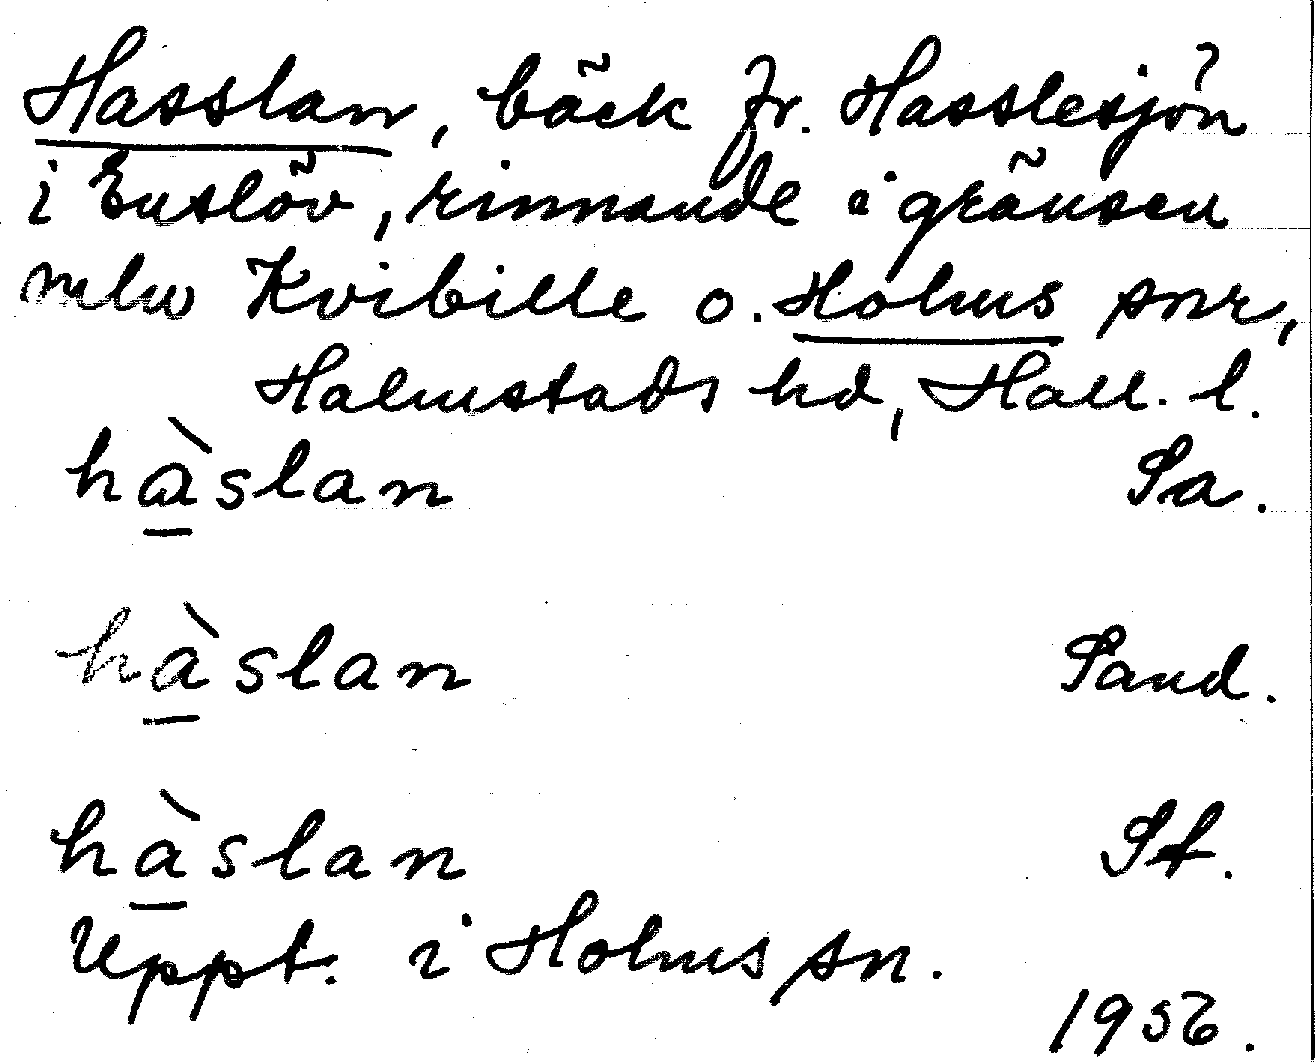 Hasslan, bäck fr. Hasslesjön
i Enslöv, rinnande i gränsen
mlw Kvibille o. Holms snr,
Halmstads hd, Hall. l.
hàslan Sa.
hàslan Sand.
hàslan St.
Uppt. i Holms sn.
1956.